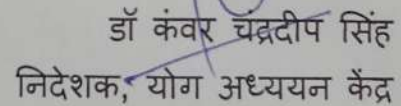 डॉ कंवर चंद्रदीप सिंह
निदेशक, योग अध्ययन केंद्र